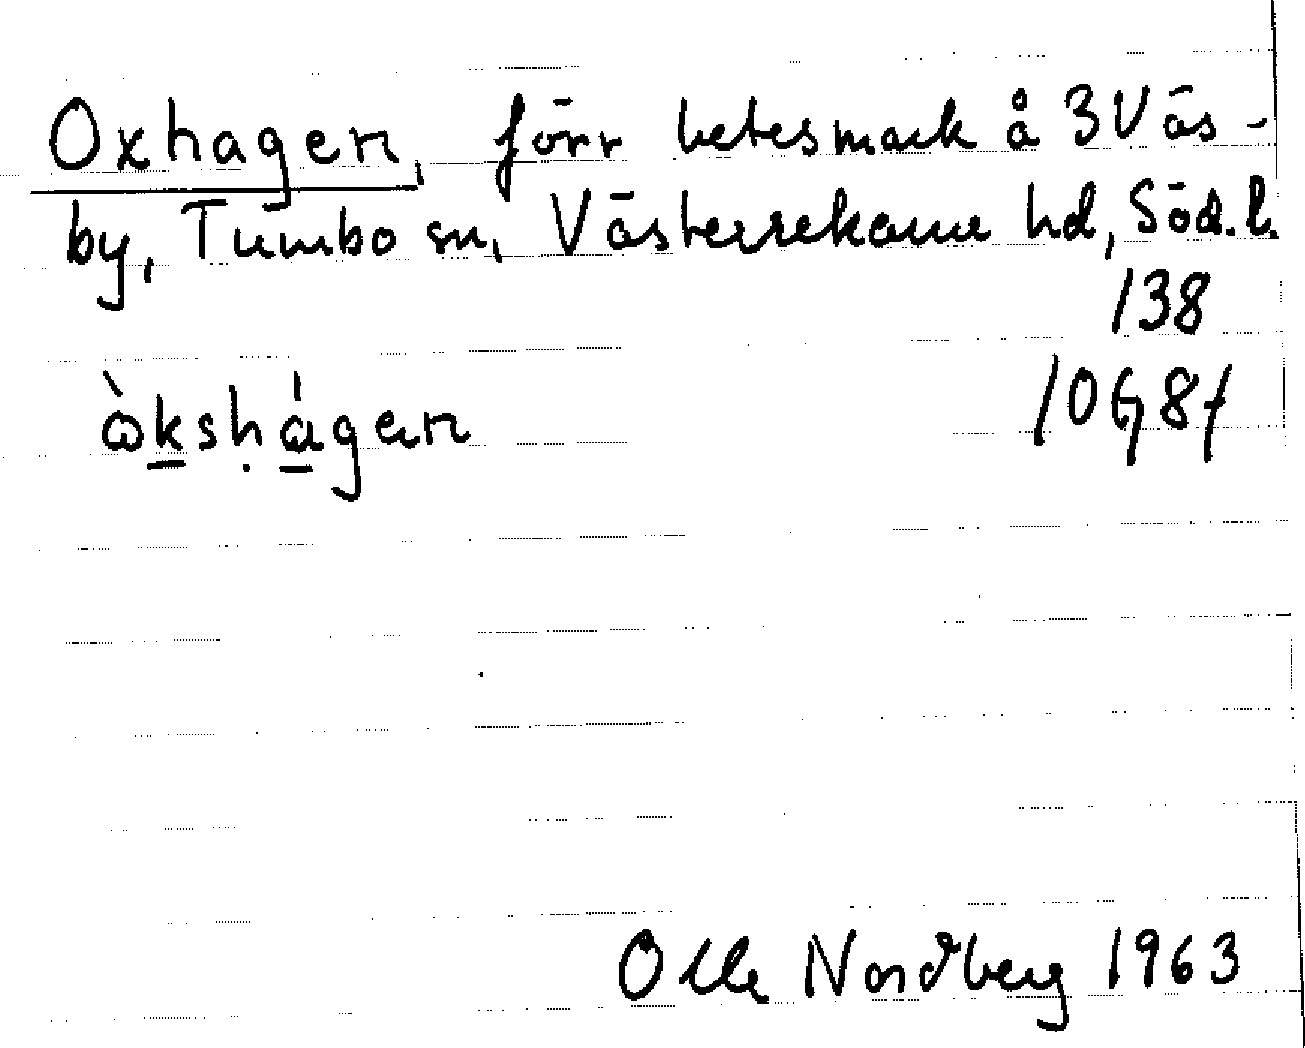 Oxhagen, förr betesmark å 3 Väs-
by, Tumbo sn, Västerrekarne hd, Söd.l.
138
10G8f
òkshágen
Olle Nordberg 1963